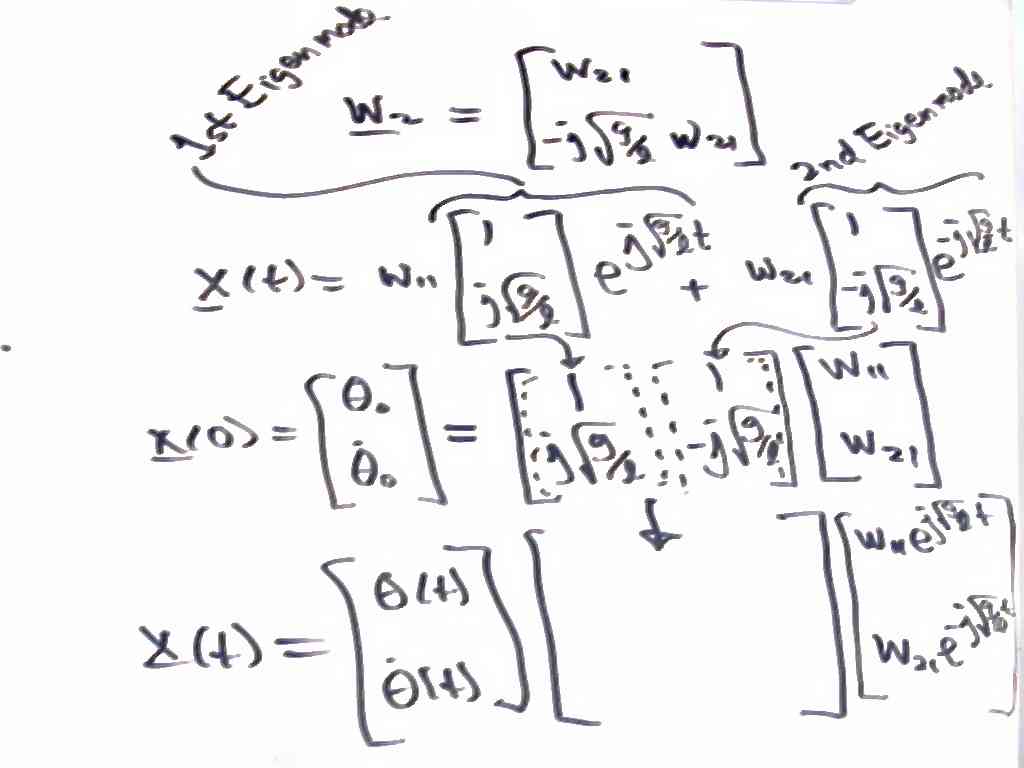 1st Eigenmode
w₂ = [ w₂₁ ; -j√(g/l) w₂₁ ]
2nd Eigenmode
x(t) = w₁₁ [ 1 ; j√(g/l) ] e^{j√(g/l)t} + w₂₁ [ 1 ; -j√(g/l) ] e^{-j√(g/l)t}
x(0) = [ θ₀ ; θ̇₀ ] = [ 1 1 ; j√(g/l) -j√(g/l) ] [ w₁₁ ; w₂₁ ]
↓
x(t) = [ θ(t) ; θ̇(t) ] [ ] [ w₁₁e^{j√(g/l)t} ; w₂₁e^{-j√(g/l)t} ]